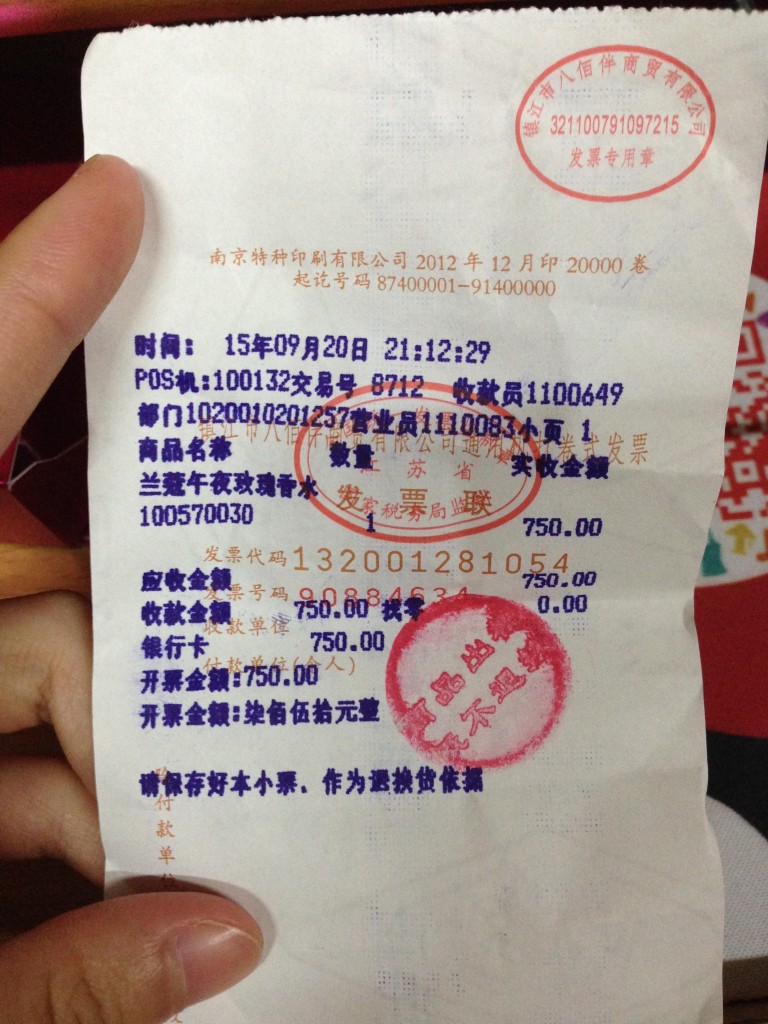 镇江市八佰伴商贸有限公司
321100791097215
发票专用章
南京特种印刷有限公司 2012 年 12 月印 20000 卷
起讫号码 87400001-91400000
时间: 15年09月20日 21:12:29
POS机:100132交易号 8712 收款员1100649
部门1020010201257营业员1110083小页 1
镇江市八佰伴商贸有限公司通用机打卷式发票
商品名称 数量 实收金额
江苏省
兰蔻午夜玫瑰香水
发票联
国家税务局监制
100570030 1 750.00
发票代码 132001281054
应收金额 750.00
发票号码 90884634
收款金额 750.00 找零 0.00
收款单位
银行卡 750.00
付款单位(个人)
开票金额:750.00
开票金额:柒佰伍拾元整
商品出
不退
请保存好本小票、作为退换货依据
付款单位